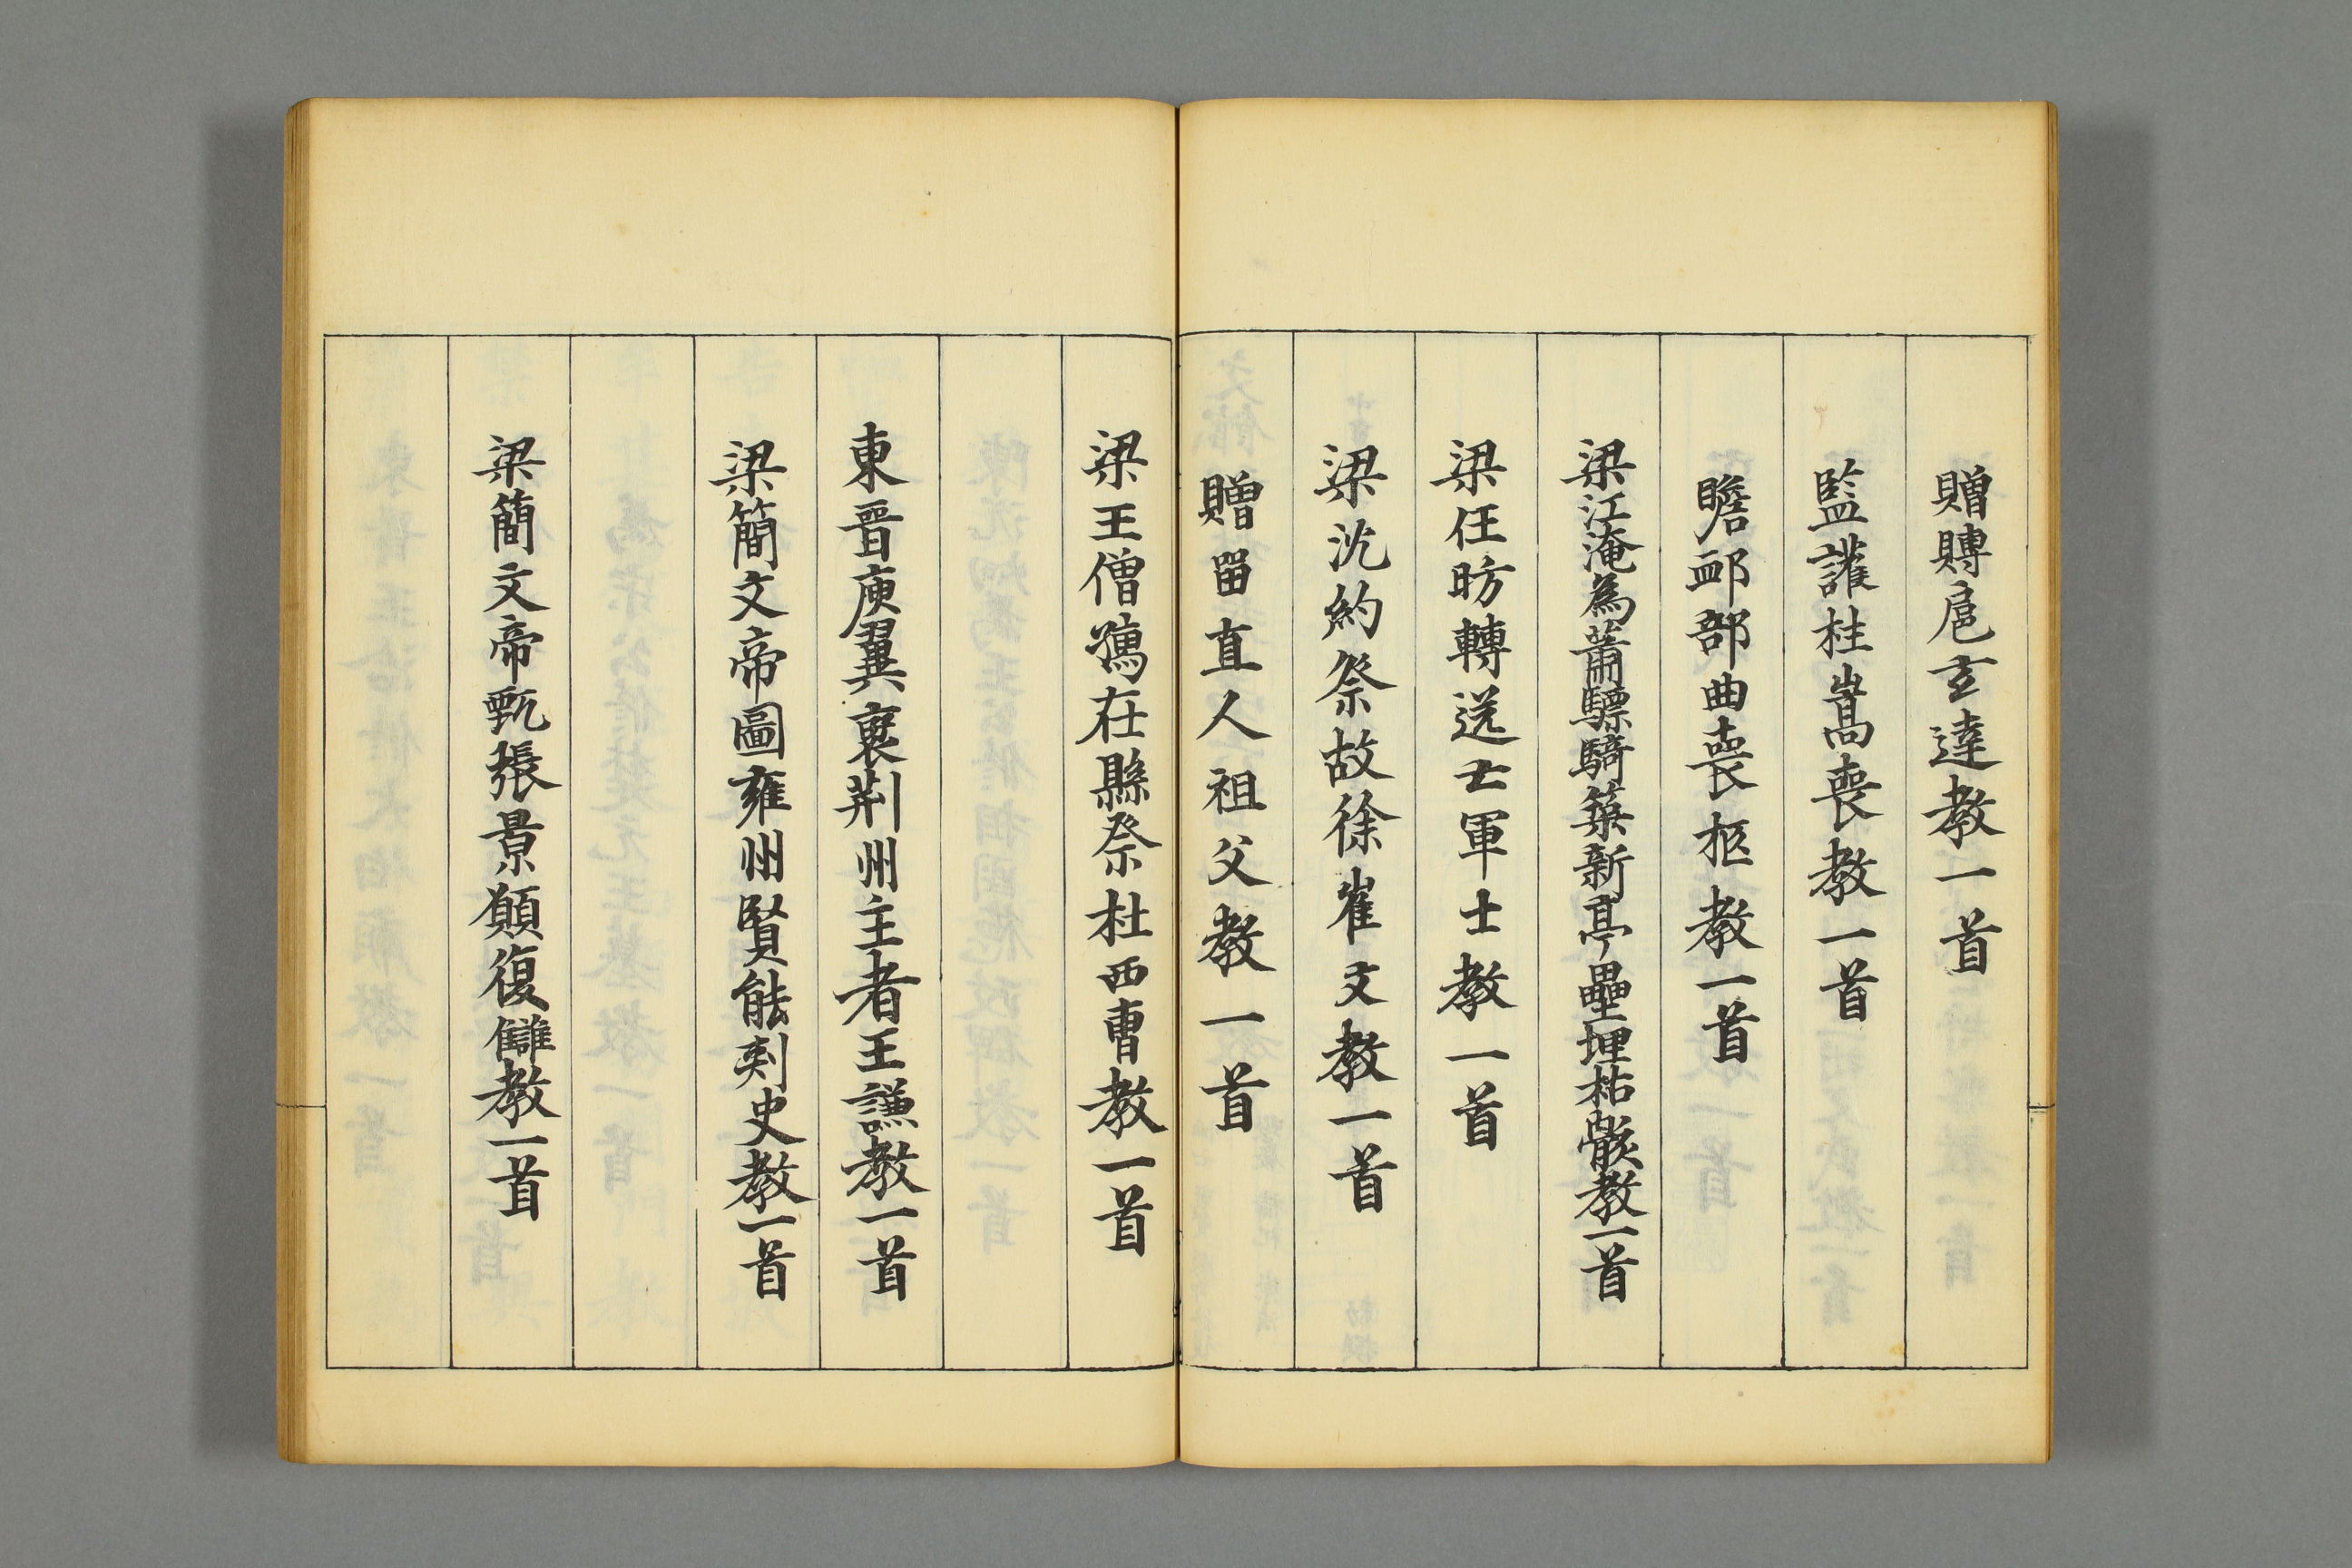 贈賻扈玄達教一首
監護桂嵩喪教一首
瞻卹部曲喪柩教一首
梁江淹為蕭驃騎築新亭壘埋枯骸教一首
梁任昉轉送亡軍士教一首
梁沈約祭故徐崔文教一首
贈留直人祖父教一首
梁王僧孺在縣祭杜西曹教一首
東晉庾翼褒荊州主者王謙教一首
梁簡文帝圖雍州賢能刺史教一首
梁簡文帝甄張景願復讎教一首